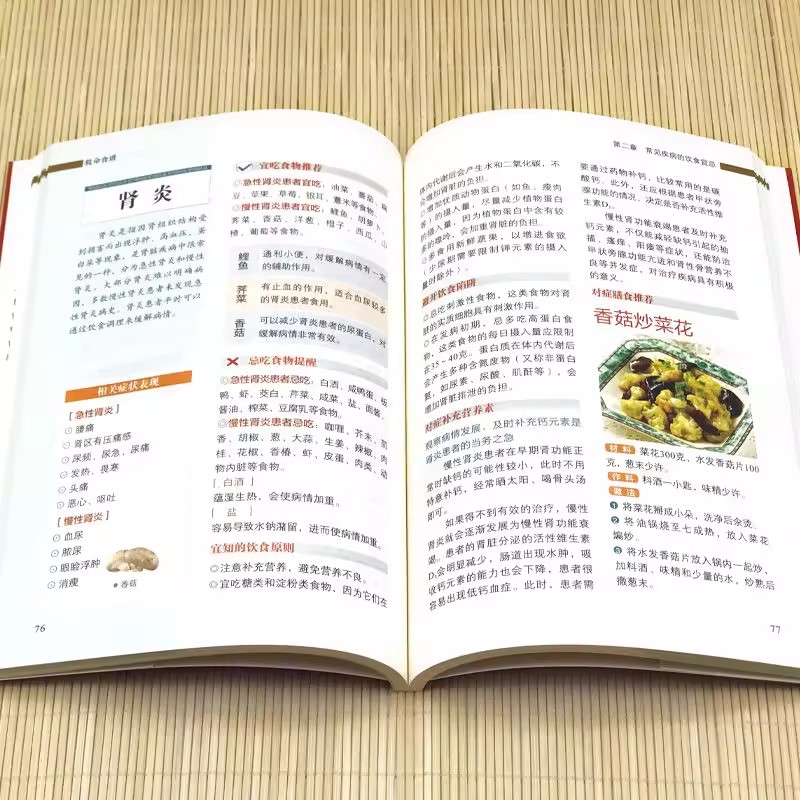 救命食谱
肾炎
肾炎是指因肾组织结构受
到损害而出现浮肿、高血压、蛋
白尿等现象，是肾脏疾病中很常
见的一种，分为急性肾炎和慢性
肾炎。大部分肾炎难以明确病
因，多数慢性肾炎患者未发现急
性肾炎病史。肾炎患者平时可以
通过饮食调理来缓解病情。
相关症状表现
[急性肾炎]
腰痛
肾区有压痛感
尿频、尿急、尿痛
发热、畏寒
头痛
恶心、呕吐
[慢性肾炎]
血尿
脓尿
眼睑浮肿
消瘦
香菇
76
宜吃食物推荐
◎急性肾炎患者宜吃：油菜、番茄、豌
豆、苹果、草莓、银耳、薏米等食物。
◎慢性肾炎患者宜吃：鲤鱼、胡萝卜、
荠菜、香菇、洋葱、橙子、西瓜、山
楂、葡萄等食物。
鲤鱼
通利小便，对缓解病情有一定
的辅助作用。
荠菜
有止血的作用，适合血尿较多
的肾炎患者食用。
香菇
可以减少肾炎患者的尿蛋白，对
缓解病情非常有效。
忌吃食物提醒
◎急性肾炎患者忌吃：白酒、咸鸭蛋、板
鸭、虾、茭白、芹菜、咸菜、盐、面酱、
酱油、榨菜、豆腐乳等食物。
◎慢性肾炎患者忌吃：咖喱、芥末、茴
香、胡椒、葱、大蒜、生姜、辣椒、肉
桂、花椒、香椿、虾、皮蛋、肉类、动
物内脏等食物。
[白酒]
蕴湿生热，会使病情加重。
[盐]
容易导致水钠潴留，进而使病情加重。
宜知的饮食原则
◎注意补充营养，避免营养不良。
◎宜吃糖类和淀粉类食物，因为它们在
第二章 常见疾病的饮食宜忌
体内代谢后会产生水和二氧化碳，不
会增加肾脏的负担。
◎增加优质动物蛋白（如鱼、瘦肉
等）的摄入量，尽量减少植物蛋白
的摄入量，因为植物蛋白中含有较
多的嘌呤，会加重肾脏的负担。
◎多食用新鲜蔬果，以增进食欲
（少尿期需要限制钾元素的摄入
量时除外）。
避开饮食陷阱
◎忌吃刺激性食物，这类食物对肾
脏的实质细胞具有刺激作用。
◎在发病初期，忌多吃高蛋白食
物，这类食物的每日摄入量应限制
在35～40克。蛋白质在体内代谢后
会产生多种含氮废物（又称非蛋白
氮，如尿素、尿酸、肌酐等），会
增加肾脏排泄的负担。
对症补充营养素
观察病情发展，及时补充钙元素是
肾炎患者的当务之急
慢性肾炎患者在早期肾功能正
常时缺钙的可能性较小，此时不用
特意补钙，经常晒太阳、喝骨头汤
即可。
如果得不到有效的治疗，慢性
肾炎就会逐渐发展为慢性肾功能衰
竭。患者的肾脏分泌的活性维生素
D₃会明显减少，肠道出现水肿，吸
收钙元素的能力也会下降，患者很
容易出现低钙血症。此时，患者需
要通过药物补钙，比较常用的是碳
酸钙。此外，还应根据患者甲状旁
腺功能的情况，决定是否补充活性维
生素D₃。
慢性肾功能衰竭患者及时补充
钙元素，不仅能减轻缺钙引起的抽
搐、瘙痒、阳痿等症状，还能防治
甲状旁腺功能亢进和肾性骨营养不
良等并发症，对治疗疾病具有积极
的意义。
对症膳食推荐
香菇炒菜花
材料 菜花300克，水发香菇片100
克，葱末少许。
作料 料酒一小匙，味精少许。
做法
1 将菜花掰成小朵，洗净后余烫。
2 将油锅烧至七成热，放入菜花
煸炒。
3 将水发香菇片放入锅内一起炒，
加料酒、味精和少量的水，炒熟后
撒葱末。
77